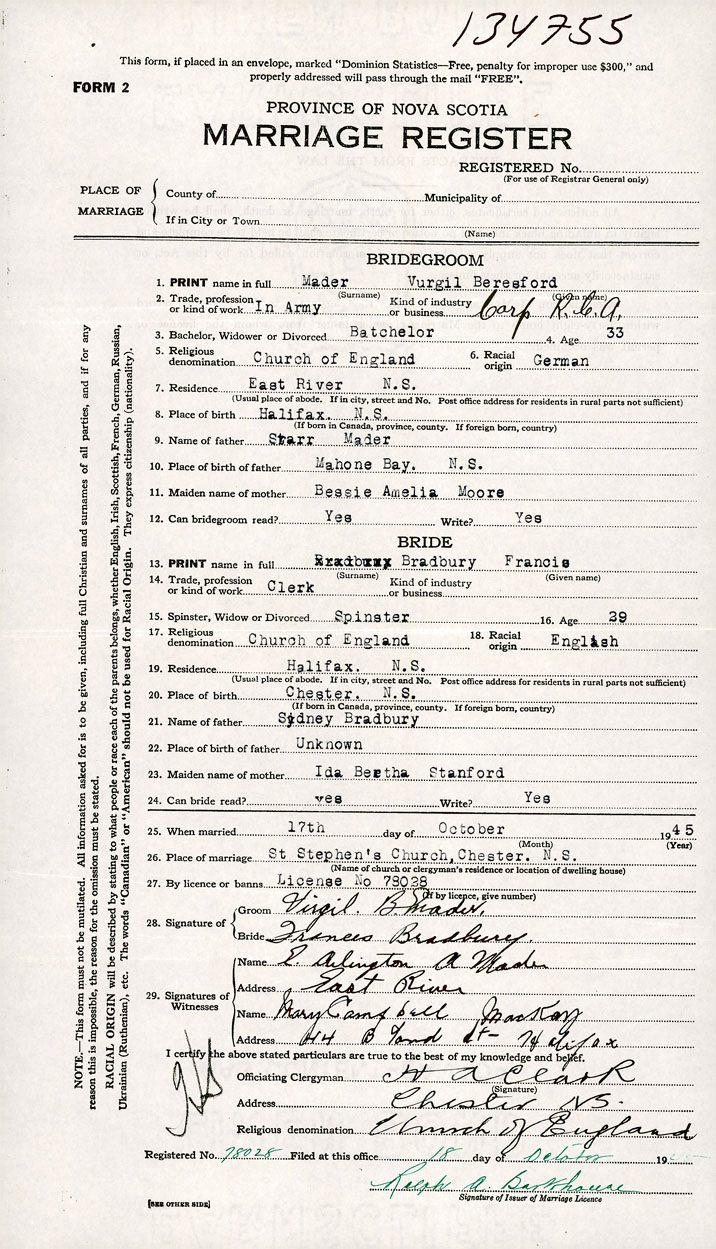 134755
This form, if placed in an envelope, marked "Dominion Statistics—Free, penalty for improper use $300," and
properly addressed will pass through the mail "FREE".
FORM 2
PROVINCE OF NOVA SCOTIA
MARRIAGE REGISTER
REGISTERED No.
(For use of Registrar General only)
PLACE OF MARRIAGE
County of Municipality of
If in City or Town
(Name)
BRIDEGROOM
1. PRINT name in full Mader Vurgil Beresford
(Surname) (Given name)
2. Trade, profession or kind of work In Army Kind of industry or business Corp R.C.A.
3. Bachelor, Widower or Divorced Batchelor 4. Age 33
5. Religious denomination Church of England 6. Racial origin German
7. Residence East River N.S.
(Usual place of abode. If in city, street and No. Post office address for residents in rural parts not sufficient)
8. Place of birth Halifax. N.S.
(If born in Canada, province, county. If foreign born, country)
9. Name of father Starr Mader
10. Place of birth of father Mahone Bay. N.S.
11. Maiden name of mother Bessie Amelia Moore
12. Can bridegroom read? Yes Write? Yes
BRIDE
13. PRINT name in full Bradbury Francis
(Surname) (Given name)
14. Trade, profession or kind of work Clerk Kind of industry or business
15. Spinster, Widow or Divorced Spinster 16. Age 29
17. Religious denomination Church of England 18. Racial origin English
19. Residence Halifax. N.S.
(Usual place of abode. If in city, street and No. Post office address for residents in rural parts not sufficient)
20. Place of birth Chester. N.S.
(If born in Canada, province, county. If foreign born, country)
21. Name of father Sydney Bradbury
22. Place of birth of father Unknown
23. Maiden name of mother Ida Bertha Stanford
24. Can bride read? yes Write? Yes
25. When married 17th day of October 1945
(Month) (Year)
26. Place of marriage St Stephen's Church, Chester. N.S.
(Name of church or clergyman's residence or location of dwelling house)
27. By licence or banns License No 78028
(If by licence, give number)
28. Signature of
Groom Virgil. B Mader.
Bride Frances Bradbury.
29. Signatures of Witnesses
Name E. Arlington A Mader
Address East River
Name Mary Campbell MacKay
Address 44 Bland St- Halifax
I certify the above stated particulars are true to the best of my knowledge and belief.
Officiating Clergyman H A Clark
(Signature)
Address Chester NS.
Religious denomination Church of England
Registered No. 78028 Filed at this office 18 day of October 19
Ralph A. Barkhouse
Signature of Issuer of Marriage Licence
[SEE OTHER SIDE]
NOTE.—This form must not be mutilated. All information asked for is to be given, including full Christian and surnames of all parties, and if for any
reason this is impossible, the reason for the omission must be stated.
RACIAL ORIGIN will be described by stating to what people or race each of the parents belongs, whether English, Irish, Scottish, French, German, Russian,
Ukrainian (Ruthenian), etc. The words "Canadian" or "American" should not be used for Racial Origin. They express citizenship (nationality).